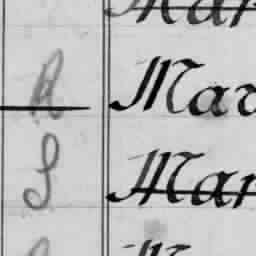 Mar
R Mar
S Mar